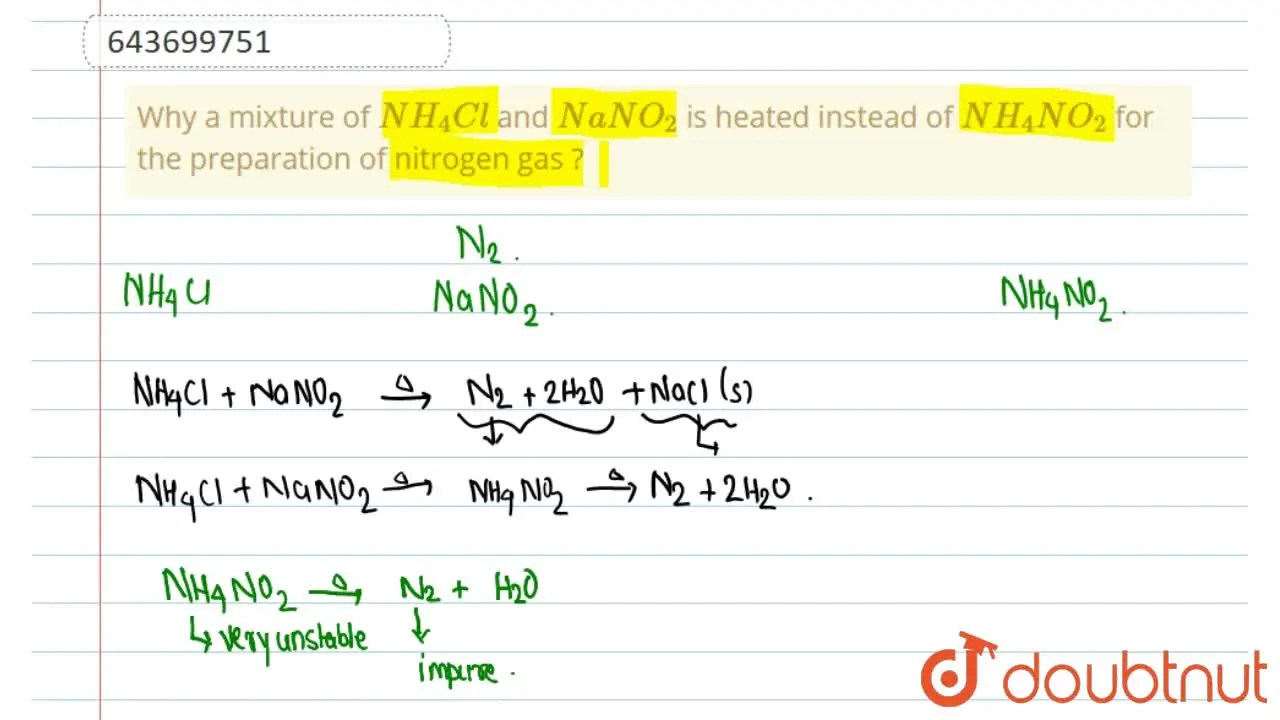 643699751
Why a mixture of NH₄Cl and NaNO₂ is heated instead of NH₄NO₂ for
the preparation of nitrogen gas ?
N₂ .
NH₄Cl NaNO₂ . NH₄NO₂ .
NH₄Cl + NaNO₂ —Δ→ N₂ + 2H₂O + NaCl (s)
NH₄Cl + NaNO₂ —Δ→ NH₄NO₂ —Δ→ N₂ + 2H₂O .
NH₄NO₂ —Δ→ N₂ + H₂O
↳ very unstable ↓
impure .
doubtnut